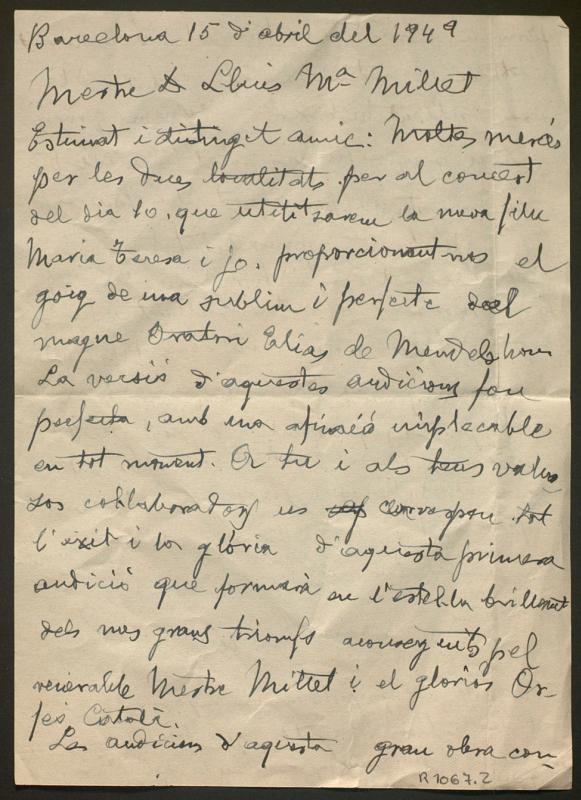 Barcelona 15 d'abril del 1949
Mestre D Lluis Mª Millet
Estimat i distinget amic: Moltes mercés
per les dues localitats per al concert
del dia 10, que utilitzarem la meva filla
Maria Teresa i jo, proporcionant nos el
goig de una sublim i perfecte del
magne Oratori Elias de Mendelshon
La versió d'aquestes audicions fou
perfecta, amb una afinació implacable
en tot moment. A tu i als teus valuo-
sos col·laboradors us correspon tot
l'exit i la glória d'aquesta primera
audició que formará en l'estel·la brillant
dels mes grans triomfs aconseguits pel
venerable Mestre Millet i el glorios Or-
feó Català.
Les audicions d'aquesta gran obra con-
R 1067.2